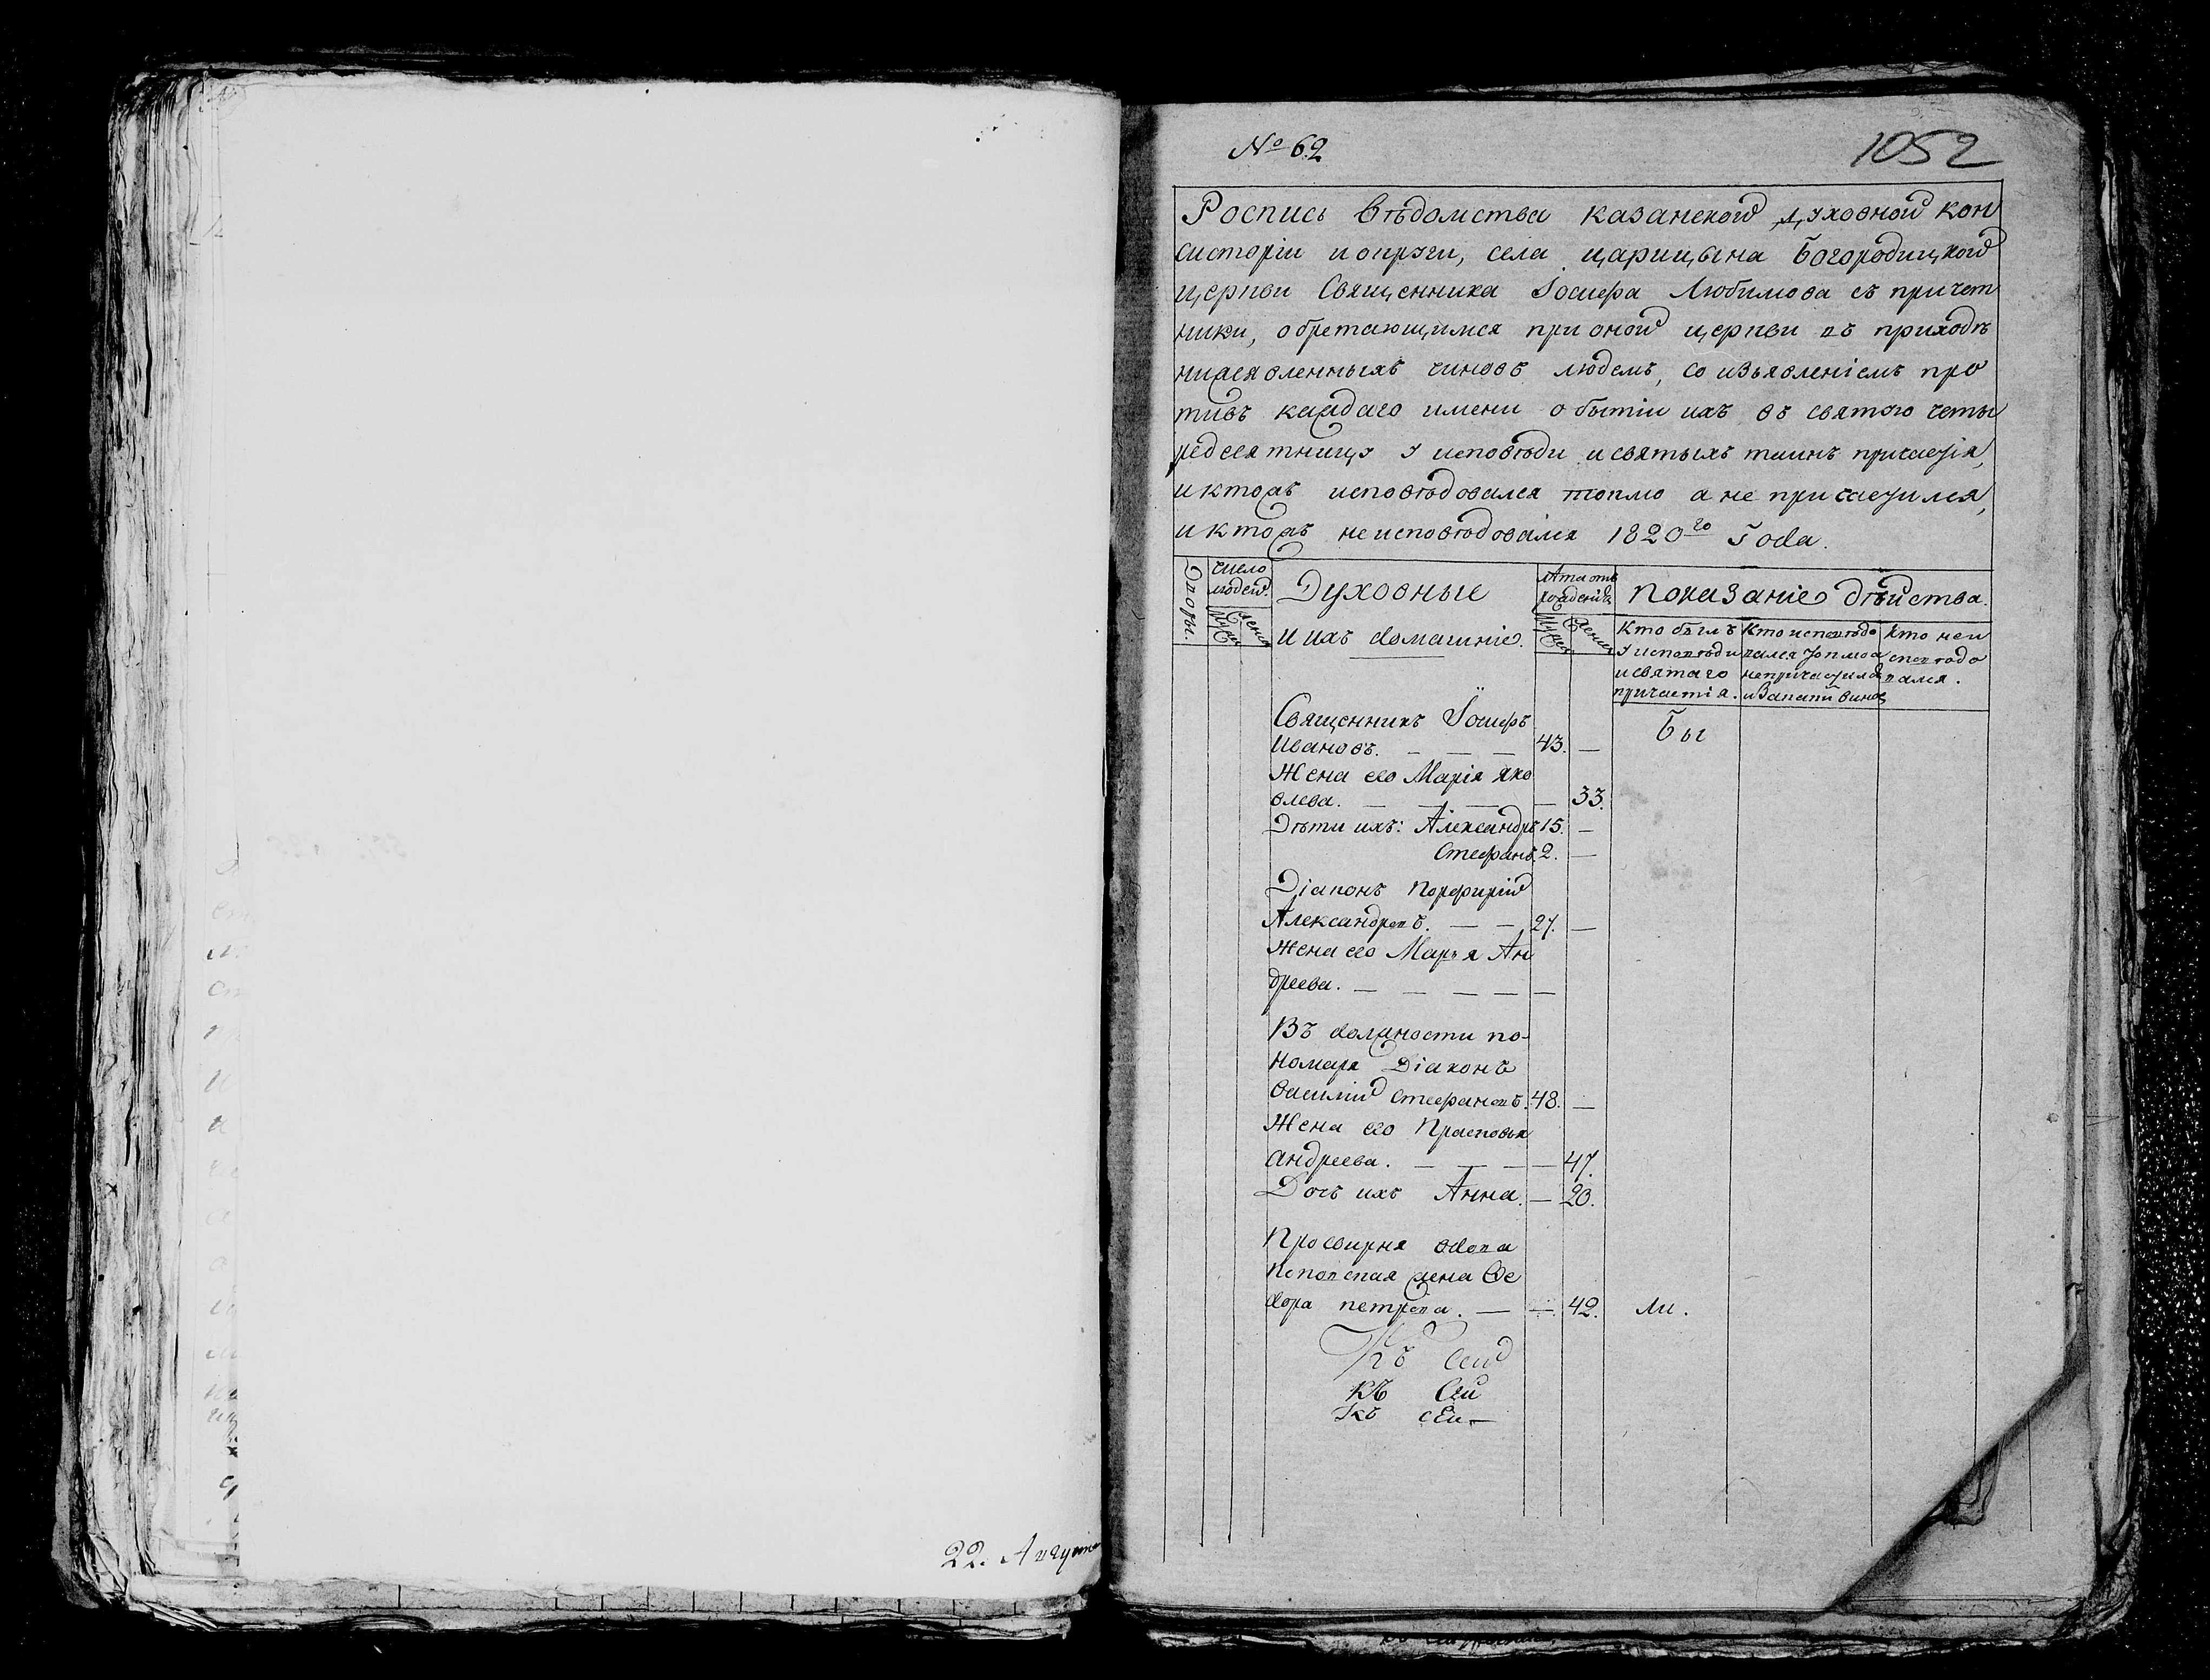 22. Августа
№ 62
1052
Роспись Вѣдомства казанской духовной кон
систоріи и округи, села царицына Богородицкой
церкви Священника Іосифа Любимова съ причет
ники, обретающимся при оной церкви въ приходѣ
нижеявленныхъ чиновъ людемъ, со изъявленіемъ про
тивъ каждаго имени о бытіи ихъ въ святую четы
редесятницу у исповѣди и святыхъ таинъ причастія,
и ктожъ исповѣдовался токмо а не причастился,
и ктожъ не исповѣдовался 1820го Года.
Дворы.
число людей.
Муж
женск
Духовные
и ихъ домашніе.
Лѣта отъ рожденія
Муж
женск
показаніе дѣйства.
Кто былъ
у исповѣди
и святаго
причастія.
Кто исповѣдо
вался токмо а
не причастился
и за какой виной
кто неи
сповѣдо
вался.
Священникъ Іосифъ
Ивановъ. — — — 43. —
Бы
Жена его Марія Яко
влева. — — — — 33.
Дѣти ихъ: Александръ 15. —
Стефанъ. 2. —
Діаконъ Порфирій
Александровъ. — — 27. —
Жена его Марья Ан
дреева. — — — — —
Въ должности по-
номаря Діаконъ
Василій Стефановъ. 48. —
Жена его Прасковья
Андреева. — — — — 47.
Дочь ихъ Анна. — 20.
Просвирня вдова
поповская жена Фе
дора петрова. — — 42. ли.
Къ сей
къ Сей
Къ сей —